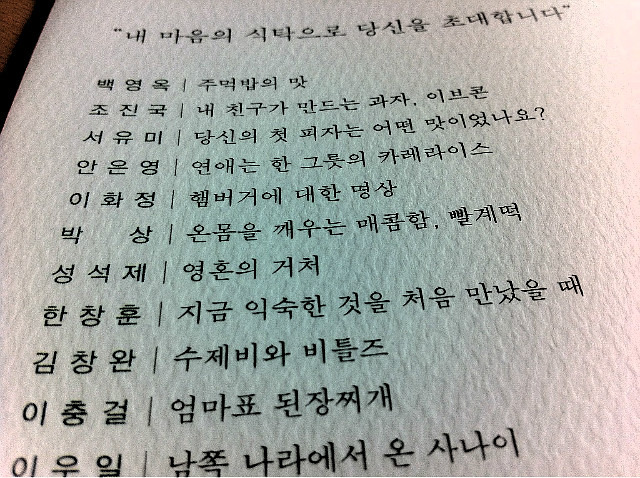 "내 마음의 식탁으로 당신을 초대합니다"
백영옥 | 주먹밥의 맛
조진국 | 내 친구가 만드는 과자, 이브콘
서유미 | 당신의 첫 피자는 어떤 맛이었나요?
안은영 | 연애는 한 그릇의 카레라이스
이화정 | 햄버거에 대한 명상
박 상 | 온몸을 깨우는 매콤함, 빨계떡
성석제 | 영혼의 거처
한창훈 | 지금 익숙한 것을 처음 만났을 때
김창완 | 수제비와 비틀즈
이충걸 | 엄마표 된장찌개
이우일 | 남쪽 나라에서 온 사나이